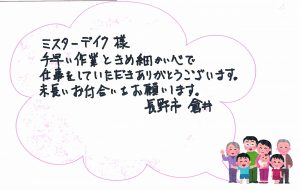 ミスターデイク様
手早い作業ときめ細かいペで
仕事をしていただきありがとうございます。
末長いお付合いをお願います。
長野市 倉井